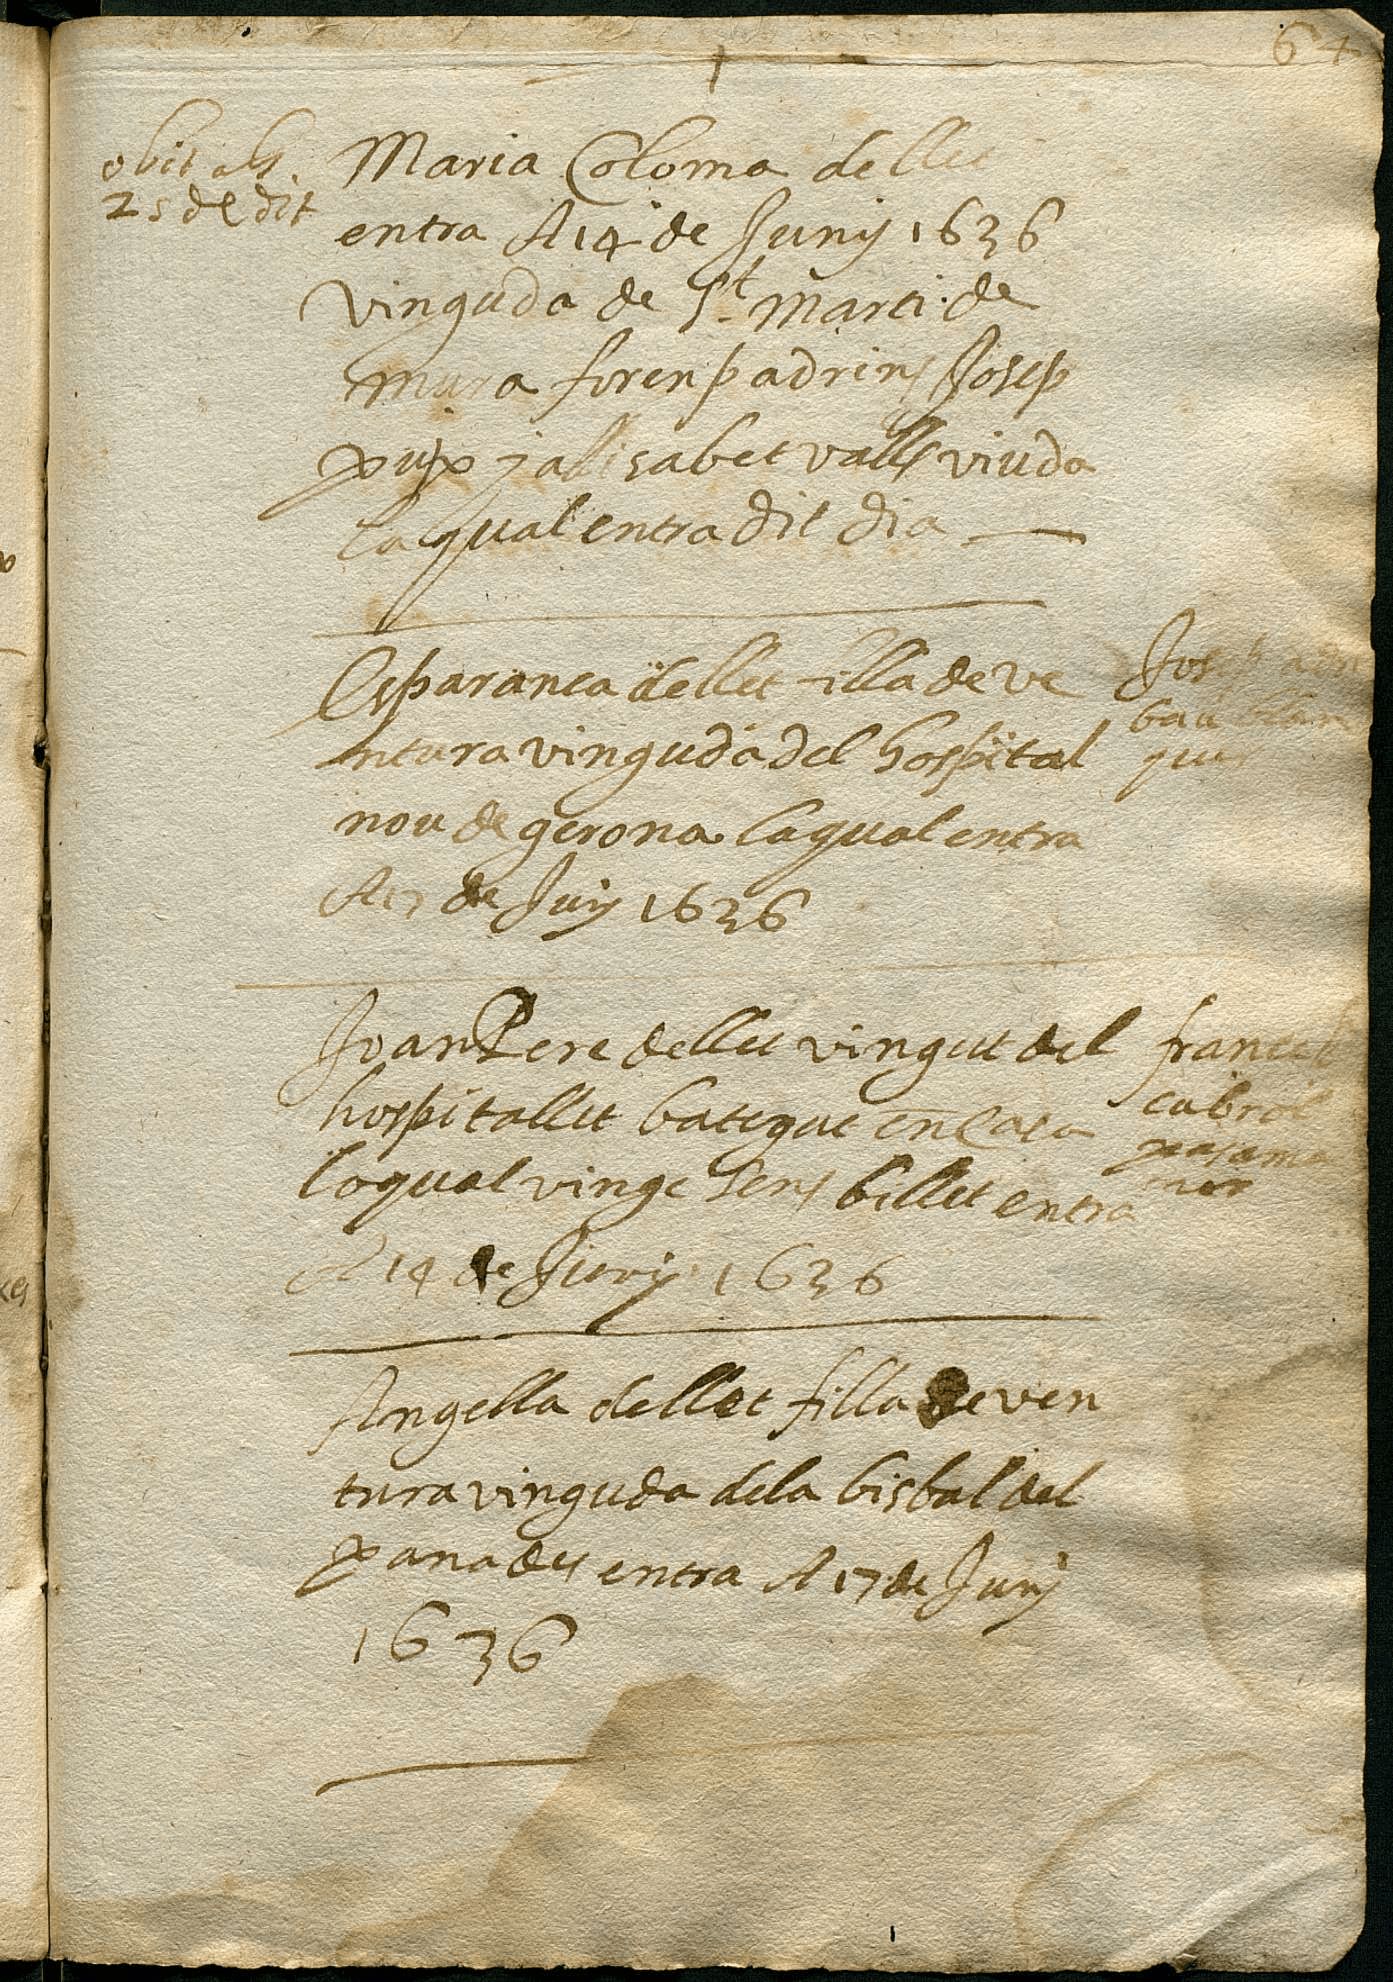 64
obit als
25 de dit
Maria Coloma de llet
entra A 14 de Juny 1636
vinguda de St. Marti de
mura foren padrins Josep
puix i alisabet valls viuda
laqual entra dit dia
Esparanca de llet filla de ve
ntura vinguda del hospital
nou de gerona laqual entra
A 17 de Juny 1636
Josep
Joan Pere de llet vingut del
hospitallet bategut en casa
loqual vinge sens billet entra
A 14 de Juny 1636
cabrol
pasama
ner
Angella de llet filla de ven
tura vinguda de la bisbal del
panades entra A 17 de Juny
1636